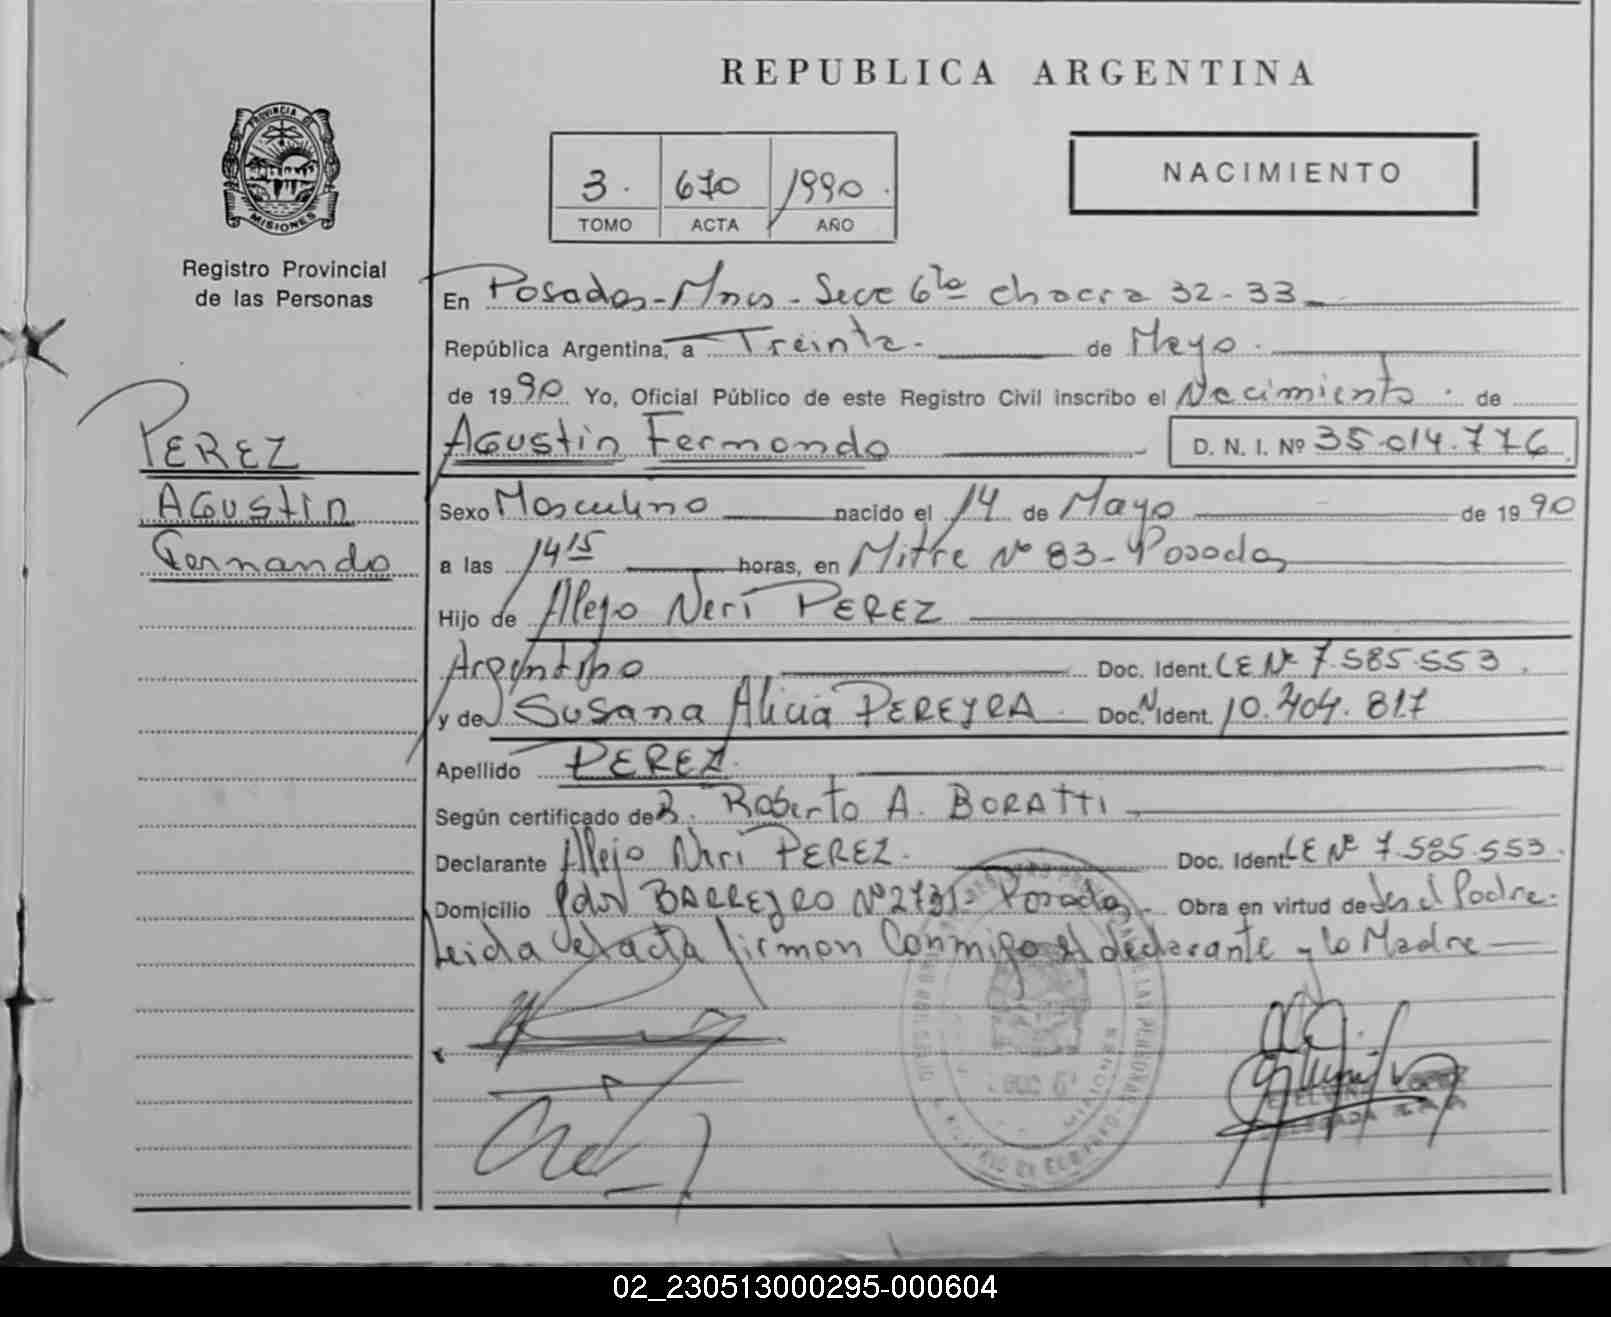 REPUBLICA ARGENTINA
PROVINCIA DE
MISIONES
Registro Provincial
de las Personas
3. 670 1990.
TOMO ACTA AÑO
NACIMIENTO
En Posadas-Mnes- Secc 6ta chacra 32-33
República Argentina, a Treinta. de Mayo.
de 1990 Yo, Oficial Público de este Registro Civil inscribo el Nacimiento. de
PEREZ
Agustin
Fernando
Agustin Fernando D. N. I. Nº 35.014.776
Sexo Masculino nacido el 14 de Mayo de 1990
a las 14 15 horas, en Mitre Nº 83- Posadas
Hijo de Alejo Neri PEREZ
Argentino Doc. Ident. LE Nº 7.585.553.
y de Susana Alicia PEREYRA Doc. Ident. 10.404.817
Apellido PEREZ.
Según certificado de Roberto A. BORATTI
Declarante Alejo Neri PEREZ. Doc. Ident. LE Nº 7.585.553.
Domicilio BARREYRO Nº 2731- Posadas- Obra en virtud de ser el Padre.
Leida el acta firman conmigo el declarante y la Madre
MISIONES
02_230513000295-000604